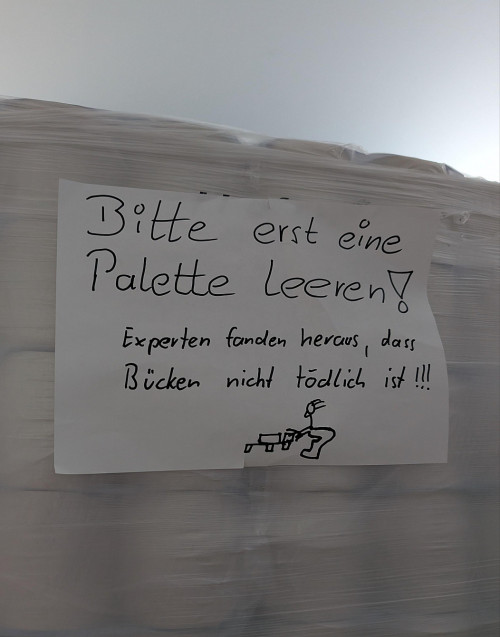 Bitte erst eine
Palette leeren!
Experten fanden heraus, dass
Bücken nicht tödlich ist!!!